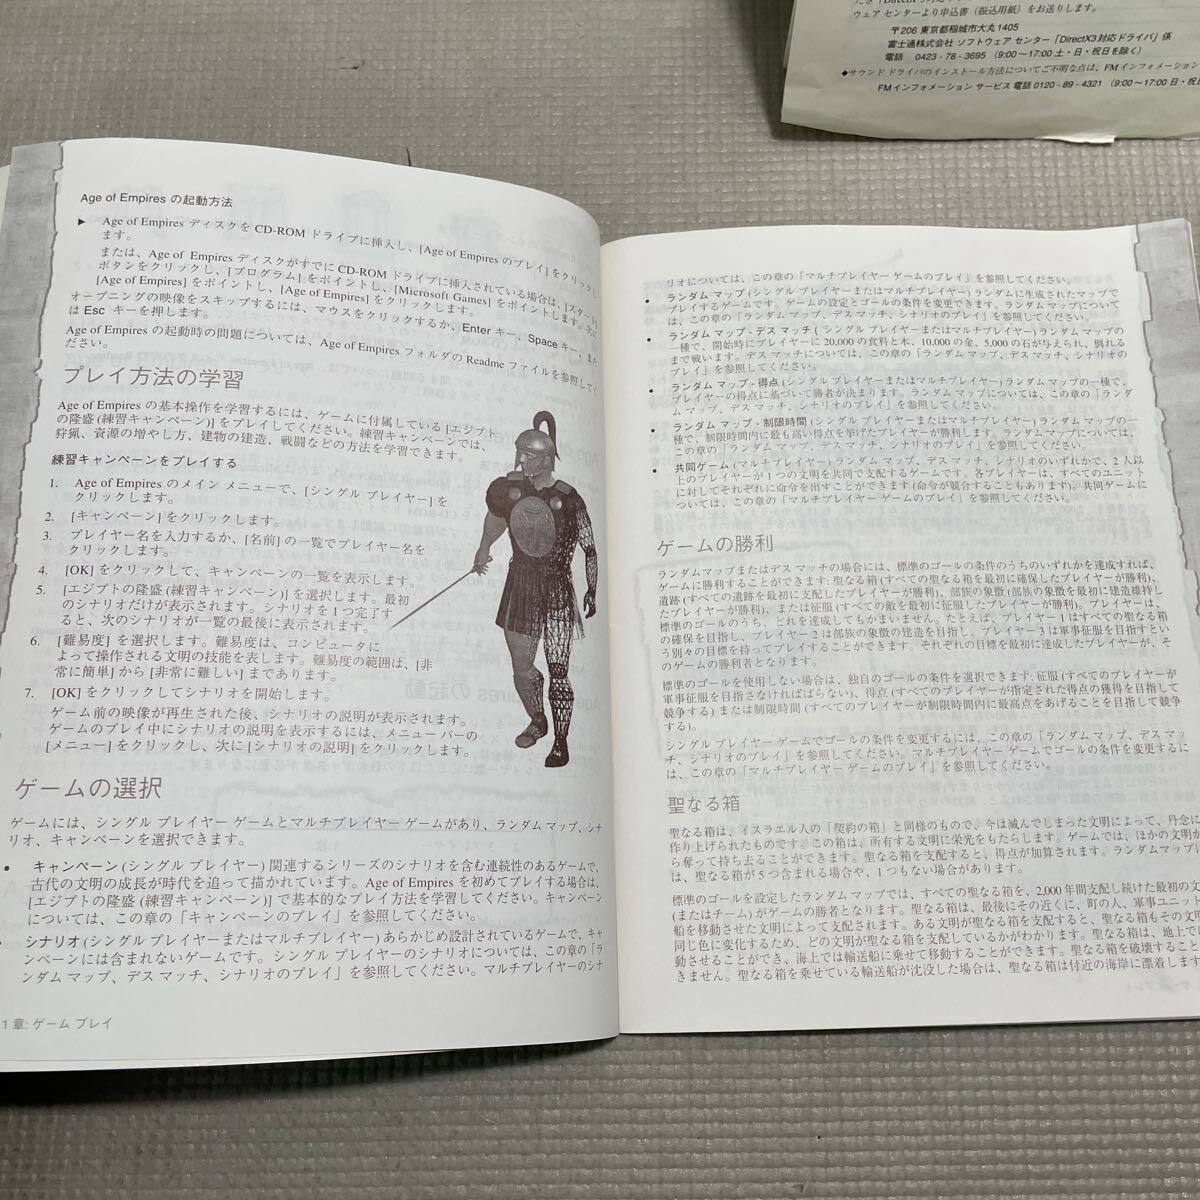 ウェア センターより申込書（振込用紙）をお送りします。
〒206 東京都稲城市大丸1405
富士通株式会社 ソフトウェア センター「DirectX3対応ドライバ」係
電話 0423 - 78 - 3695 （9:00～17:00 土・日・祝日を除く）
◆サウンド ドライバのインストール方法についてご不明な点は、FMインフォメーション
FMインフォメーション サービス 電話 0120 - 89 - 4321 （9:00～17:00 日・祝日
Age of Empires の起動方法
▶ Age of Empires ディスクを CD-ROM ドライブに挿入し、[Age of Empires のプレイ] をクリックし
ます。
または、Age of Empires ディスクがすでに CD-ROM ドライブに挿入されている場合は、[スタート]
ボタンをクリックし、[プログラム] をポイントし、[Microsoft Games] をポイントします。次に
[Age of Empires] をポイントし、[Age of Empires] をクリックします。
オープニングの映像をスキップするには、マウスをクリックするか、Enter キー、Space キー、また
は Esc キーを押します。
Age of Empires の起動時の問題については、Age of Empires フォルダの Readme ファイルを参照してく
ださい。
プレイ方法の学習
Age of Empires の基本操作を学習するには、ゲームに付属している [エジプト
の隆盛 (練習キャンペーン)] をプレイしてください。練習キャンペーンでは、
狩猟、資源の増やし方、建物の建造、戦闘などの方法を学習できます。
練習キャンペーンをプレイする
1. Age of Empires のメイン メニューで、[シングル プレイヤー] を
クリックします。
2. [キャンペーン] をクリックします。
3. プレイヤー名を入力するか、[名前] の一覧でプレイヤー名を
クリックします。
4. [OK] をクリックして、キャンペーンの一覧を表示します。
5. [エジプトの隆盛 (練習キャンペーン)] を選択します。最初
のシナリオだけが表示されます。シナリオを 1 つ完了す
ると、次のシナリオが一覧の最後に表示されます。
6. [難易度] を選択します。難易度は、コンピュータに
よって操作される文明の技能を表します。難易度の範囲は、[非
常に簡単] から [非常に難しい] まであります。
7. [OK] をクリックしてシナリオを開始します。
ゲーム前の映像が再生された後、シナリオの説明が表示されます。
ゲームのプレイ中にシナリオの説明を表示するには、メニュー バーの
[メニュー] をクリックし、次に [シナリオの説明] をクリックします。
ゲームの選択
ゲームには、シングル プレイヤー ゲームとマルチプレイヤー ゲームがあり、ランダム マップ、シナ
リオ、キャンペーンを選択できます。
• キャンペーン (シングル プレイヤー) 関連するシリーズのシナリオを含む連続性のあるゲームで、
古代の文明の成長が時代を追って描かれています。Age of Empires を初めてプレイする場合は、
[エジプトの隆盛 (練習キャンペーン)] で基本的なプレイ方法を学習してください。キャンペーン
については、この章の「キャンペーンのプレイ」を参照してください。
• シナリオ (シングル プレイヤーまたはマルチプレイヤー) あらかじめ設計されているゲームで、キャ
ンペーンには含まれないゲームです。シングル プレイヤーのシナリオについては、この章の「ラ
ンダム マップ、デス マッチ、シナリオのプレイ」を参照してください。マルチプレイヤーのシナ
1 章: ゲーム プレイ
リオについては、この章の「マルチプレイヤー ゲームのプレイ」を参照してください。
• ランダム マップ (シングル プレイヤーまたはマルチプレイヤー) ランダムに生成されたマップで
プレイするゲームです。ゲームの設定とゴールの条件を変更できます。ランダム マップについて
は、この章の「ランダム マップ、デス マッチ、シナリオのプレイ」を参照してください。
• ランダム マップ - デス マッチ ( シングル プレイヤーまたはマルチプレイヤー) ランダム マップの
一種で、開始時にプレイヤーに 20,000 の食料と木、10,000 の金、5,000 の石が与えられ、倒れる
まで戦います。デス マッチについては、この章の「ランダム マップ、デス マッチ、シナリオの
プレイ」を参照してください。
• ランダム マップ - 得点 (シングル プレイヤーまたはマルチプレイヤー) ランダム マップの一種で、
プレイヤーの得点に基づいて勝者が決まります。ランダム マップについては、この章の「ランダ
ム マップ、デス マッチ、シナリオのプレイ」を参照してください。
• ランダム マップ - 制限時間 (シングル プレイヤーまたはマルチプレイヤー) ランダム マップの一
種で、制限時間内に最も高い得点を挙げたプレイヤーが勝利します。ランダム マップについては、
この章の「ランダム マップ、デス マッチ、シナリオのプレイ」を参照してください。
• 共同ゲーム (マルチプレイヤー) ランダム マップ、デス マッチ、シナリオのいずれかで、2 人以
上のプレイヤーが 1 つの文明を共同で支配するゲームです。各プレイヤーは、すべてのユニット
に対してそれぞれに命令を出すことができます (命令が競合することもあります)。共同ゲームに
ついては、この章の「マルチプレイヤー ゲームのプレイ」を参照してください。
ゲームの勝利
ランダムマップまたはデス マッチの場合には、標準のゴールの条件のうちのいずれかを達成すれば、
ゲームに勝利することができます: 聖なる箱 (すべての聖なる箱を最初に確保したプレイヤーが勝利)、
遺跡 (すべての遺跡を最初に支配したプレイヤーが勝利)、部族の象徴 (部族の象徴を最初に建造維持し
たプレイヤーが勝利)、または征服 (すべての敵を最初に征服したプレイヤーが勝利)。プレイヤーは、
標準のゴールのうち、どれを達成してもかまいません。たとえば、プレイヤー 1 はすべての聖なる箱
の確保を目指し、プレイヤー 2 は部族の象徴の建造を目指し、プレイヤー 3 は軍事征服を目指すとい
う別々の目標を持ってプレイすることができます。それぞれの目標を最初に達成したプレイヤーが、そ
のゲームの勝利者となります。
標準のゴールを使用しない場合は、独自のゴールの条件を選択できます: 征服 (すべてのプレイヤーが
軍事征服を目指さなければばらない)、得点 (すべてのプレイヤーが指定された得点の獲得を目指して
競争する) または制限時間 (すべてのプレイヤーが制限時間内に最高点をあげることを目指して競争
する)。
シングル プレイヤー ゲームでゴールの条件を変更するには、この章の「ランダム マップ、デス マッ
チ、シナリオのプレイ」を参照してください。マルチプレイヤー ゲームでゴールの条件を変更するに
は、この章の「マルチプレイヤー ゲームのプレイ」を参照してください。
聖なる箱
聖なる箱は、イスラエル人の「契約の箱」と同様のもので、今は滅んでしまった文明によって、丹念に
作り上げられたものです。この箱は、所有する文明に栄光をもたらします。ゲームでは、ほかの文明か
ら奪って持ち去ることができます。聖なる箱を支配すると、得点が加算されます。ランダム マップに
は、聖なる箱が 5 つ含まれる場合や、1 つもない場合があります。
標準のゴールを設定したランダム マップでは、すべての聖なる箱を、2,000 年間支配し続けた最初の文
(またはチーム) がゲームの勝者となります。聖なる箱は、最後にその近くに、町の人、軍事ユニット
船を移動させた文明によって支配されます。ある文明が聖なる箱を支配すると、聖なる箱もその文明
同じ色に変化するため、どの文明が聖なる箱を支配しているかがわかります。聖なる箱は、地上では
動させることができ、海上では輸送船に乗せて移動することができます。聖なる箱を破壊すること
きません。聖なる箱を乗せている輸送船が沈没した場合は、聖なる箱は付近の海岸に漂着します